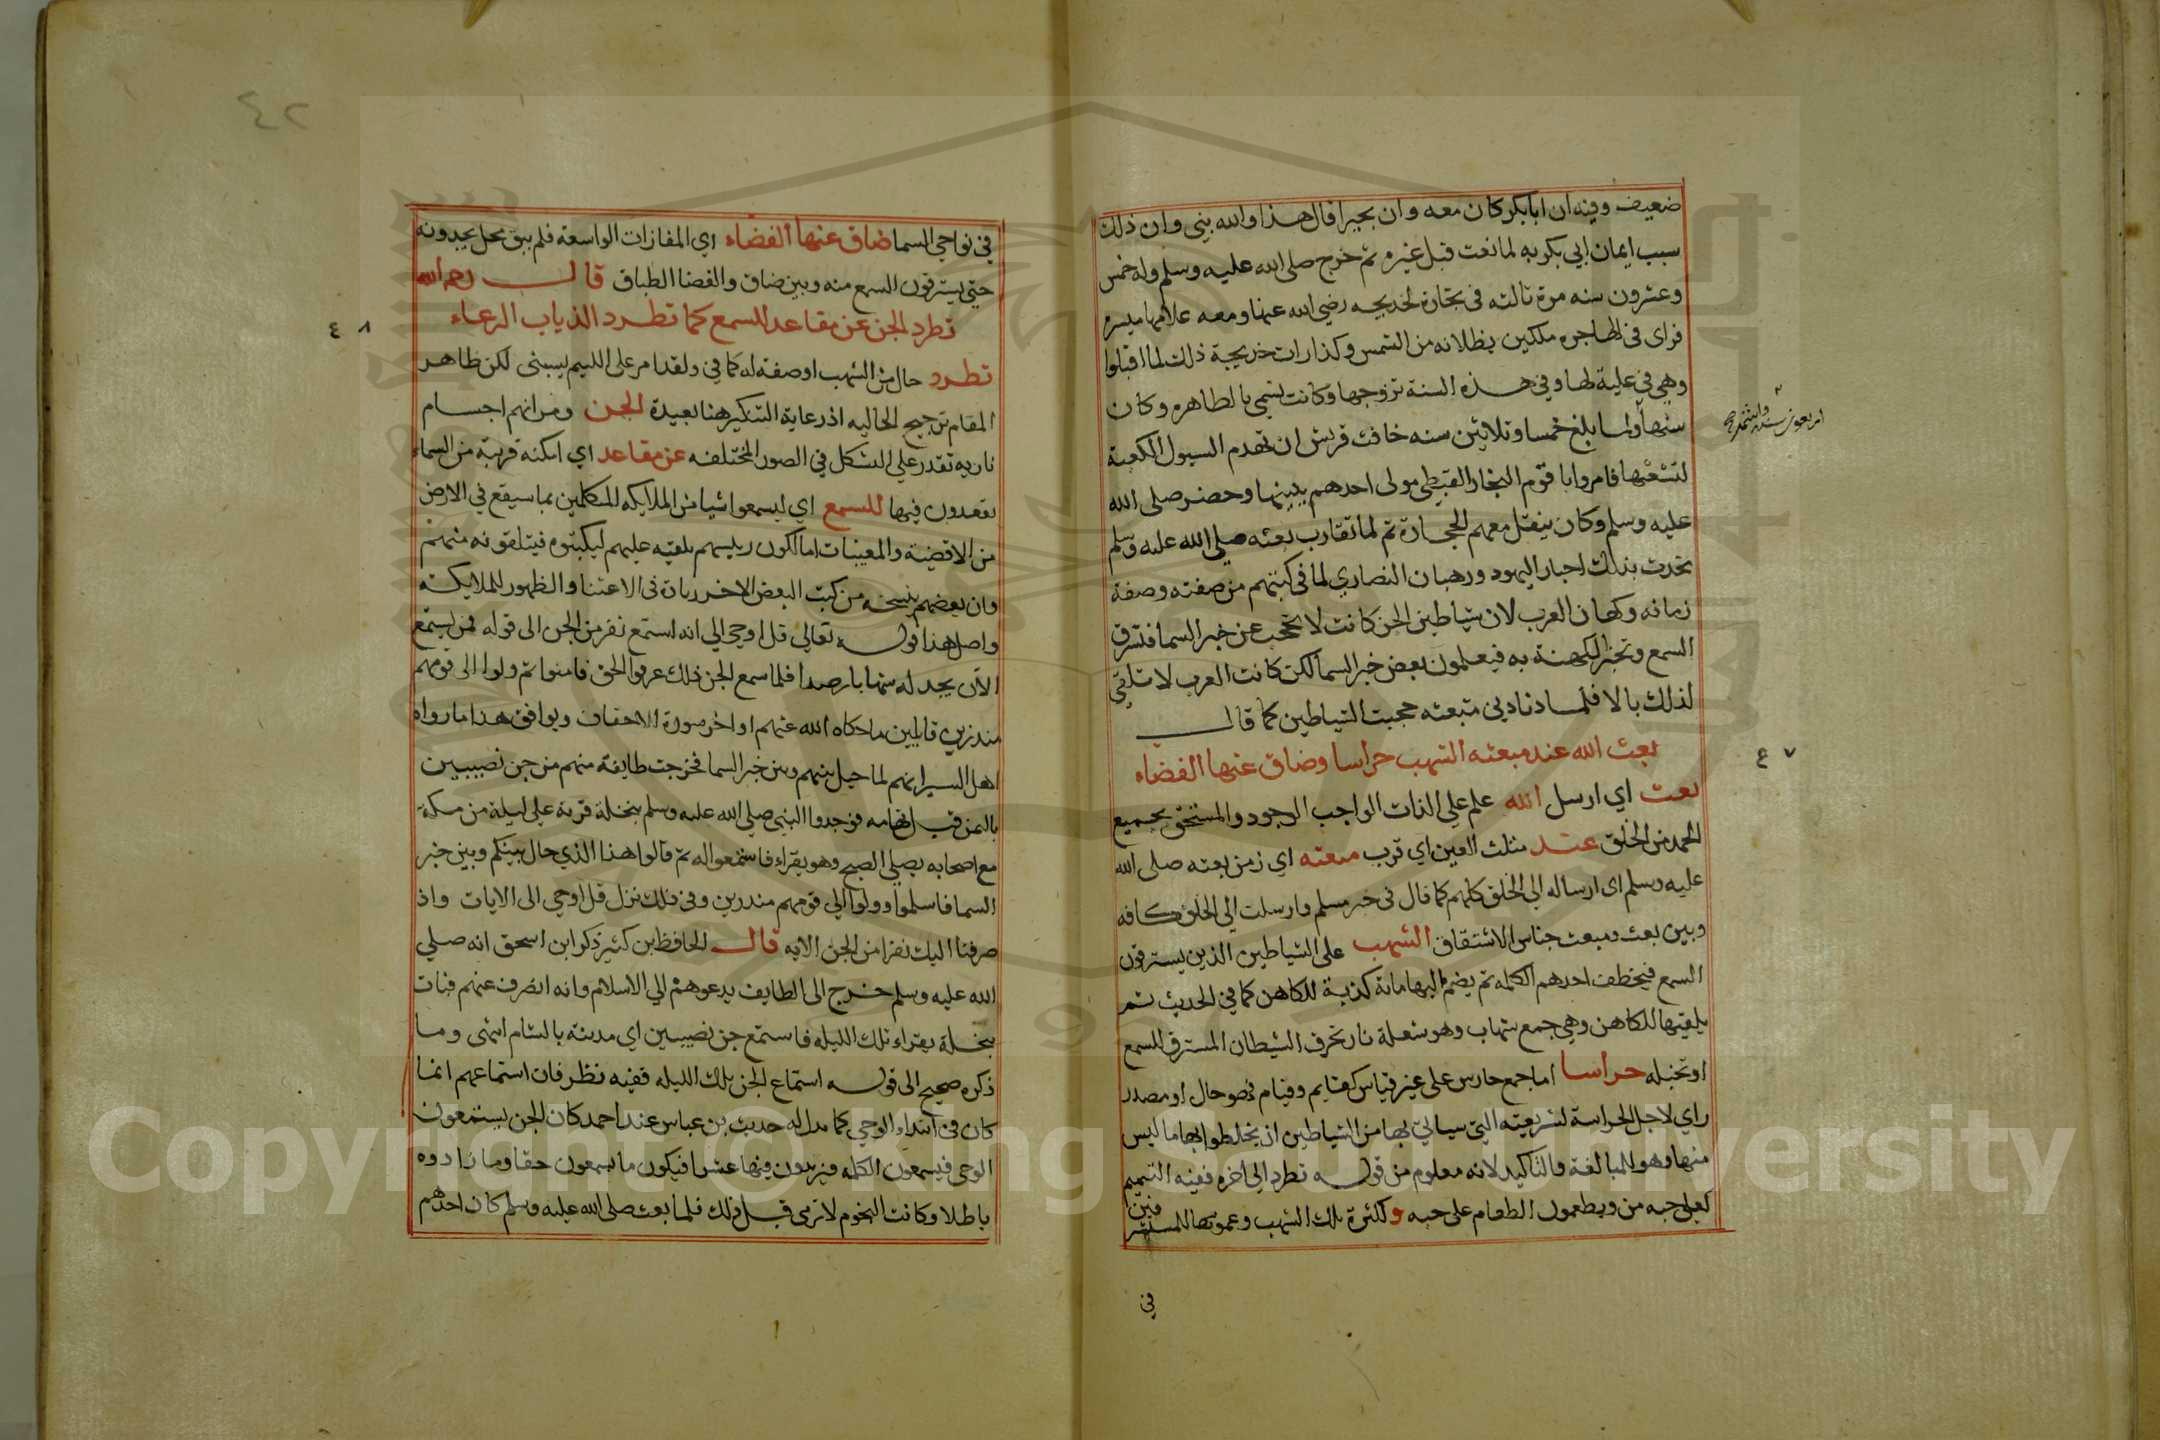 ضعيف وفيه ان ابابكر كان معه وان بحيرا قال هذا والله نبي وان ذلك
سبب ايمان ابي بكر به لما بعث قبل غيره ثم خرج صلى الله عليه وسلم وله خمس
وعشرون سنه مرة ثالثه في تجارة لخديجه رضي الله عنها ومعه غلامها ميسره
فراى في الهاجره ملكين يظلانه من الشمس وكذا رات خديجة ذلك لما اقبلوا
وهي في علية لها وفي هذه السنة تزوجها وكانت تسمي بالطاهره وكان
سنها
اربعون سنه
ولما بلغ خمسا وثلاثين سنه خافت قريش ان تهدم السيول الكعبة
لتشعثها فامروا باقوم النجار القبطي مولى احدهم ببنيها وحضر صلى الله
عليه وسلم وكان ينقل معهم الحجارة ثم لما تقارب بعثه صلي الله عليه وسلم
تحدث بذلك احبار اليهود ورهبان النصاري لما في كتبهم من صفته وصفة
زمانه وكهان العرب لان شياطين الجن كانت لا تحجب عن خبر السما فتسترق
السمع وتخبر الكهنة به فيعلمون بعض خبر السما لكن كانت العرب لا تلقي
لذلك بالا فلما دنا دين مبعثه حجبت الشياطين كما قال
٤٧
بعث الله عند مبعثه الشهب حراسا وضاق عنها الفضاء
بعث اي ارسل الله علم علي الذات الواجب الوجود والمستحق بجميع
الحمد من الخلق عند مثلث العين اي قرب مبعثه اي زمن بعثه صلى الله
عليه وسلم اى ارساله الي الخلق كلهم كما قال في خبر مسلم وارسلت الي الخلق كافه
وبين بعث ومبعث جناس الاشتقاق الشهب على الشياطين الذين يسترقون
السمع فيخطف احدهم الكلمه ثم يضم اليها ماية كذبة للكاهن كما في الحديث ثم
يلقيها للكاهن وهي جمع شهاب وهو شعلة نار تحرق الشيطان المسترق للسمع
او تخبله حراسا اما جمع حارس على غير قياس كقايم وقيام فهو حال او مصدر
راي لاجل الحراسة لشريعته التي سياتي بها من الشياطين ان يخلطوا بها ما ليس
منها وهو للمبالغة والتاكيد لانه معلوم من قوله تطرد الي اخره ففيه التتميم
كعلي حبه من ويطعمون الطعام على حبه ولكثرة تلك الشهب وعمومها للمسترقين
في
في نواحي السما ضاق عنها الفضاء اي المفازات الواسعة فلم يبق محل يجدونه
حتي يسترقون السمع منه وبين ضاق والفضا الطباق قال رحمه الله
٤٨
تطرد الجن عن مقاعد للسمع كما تطرد الذياب الرعاء
تطرد حال من الشهب او صفة له كما في ولقد امر على الليم يسبني لكن ظاهر
المقام ترجيح الحاليه اذ رعاية التنكير هنا بعيدة الجن ومر انهم اجسام
ناريه تقدر علي التشكل في الصور المختلفه عن مقاعد اي امكنه قريبة من السماء
يقعدون فيها للسمع اي ليسمعوا شيا من الملايكه المتكلمين بما سيقع في الارض
من الاقضية والمغيبات اما لكون رييسهم يلقيه عليهم ليكتبوه فيتلقونه منهم
وان بعضهم ينسخه من كتب البعض الاخر زيادة في الاعتنا والظهور للملايكة
واصل هذا قوله تعالي قل اوحي الي انه استمع نفر من الجن الى قوله فمن يستمع
الان يجد له شهابا رصدا فلما سمع الجن ذلك عرفوا الحق فامنوا ثم ولوا الى قومهم
منذرين قايلين ما حكاه الله عنهم اواخر سورة الاحقاف ويوافق هذا ما رواه
اهل السير انهم لما حيل بينهم وبين خبر السما فخرجت طايفة منهم من جن نصيبين
باليمن قبل تهامه فوجدوا النبي صلي الله عليه وسلم بنخلة قرية على ليلة من مكة
مع اصحابه يصلي الصبح وهو يقراء فاستمعوا له ثم قالوا هذا الذي حال بينكم وبين خبر
السما فاسلموا وولوا الي قومهم منذرين وفي ذلك نزل قل اوحي الى الايات واذ
صرفنا اليك نفرا من الجن الايه قال الحافظ بن كثير ذكر ابن اسحق انه صلي
الله عليه وسلم خرج الى الطايف يدعوهم الي الاسلام وانه انصرف عنهم فبات
بنخلة يقراء تلك الليله فاستمع جن نصيبين اي مدينه بالشام انتهى وما
ذكره صحيح الى قوله استماع الجن تلك الليله ففيه نظر فان استماعهم انما
كان في ابتداء الوحي كما يدل له حديث بن عباس عند احمد كان الجن يستمعون
الوحي فيسمعون الكلمه فيزيدون فيها عشرا فيكون ما يسمعون حقا وما زادوه
باطلا وكانت النجوم لا ترمى قبل ذلك فلما بعث صلى الله عليه وسلم كان احدهم
٤٢
Copyright © King Saud University